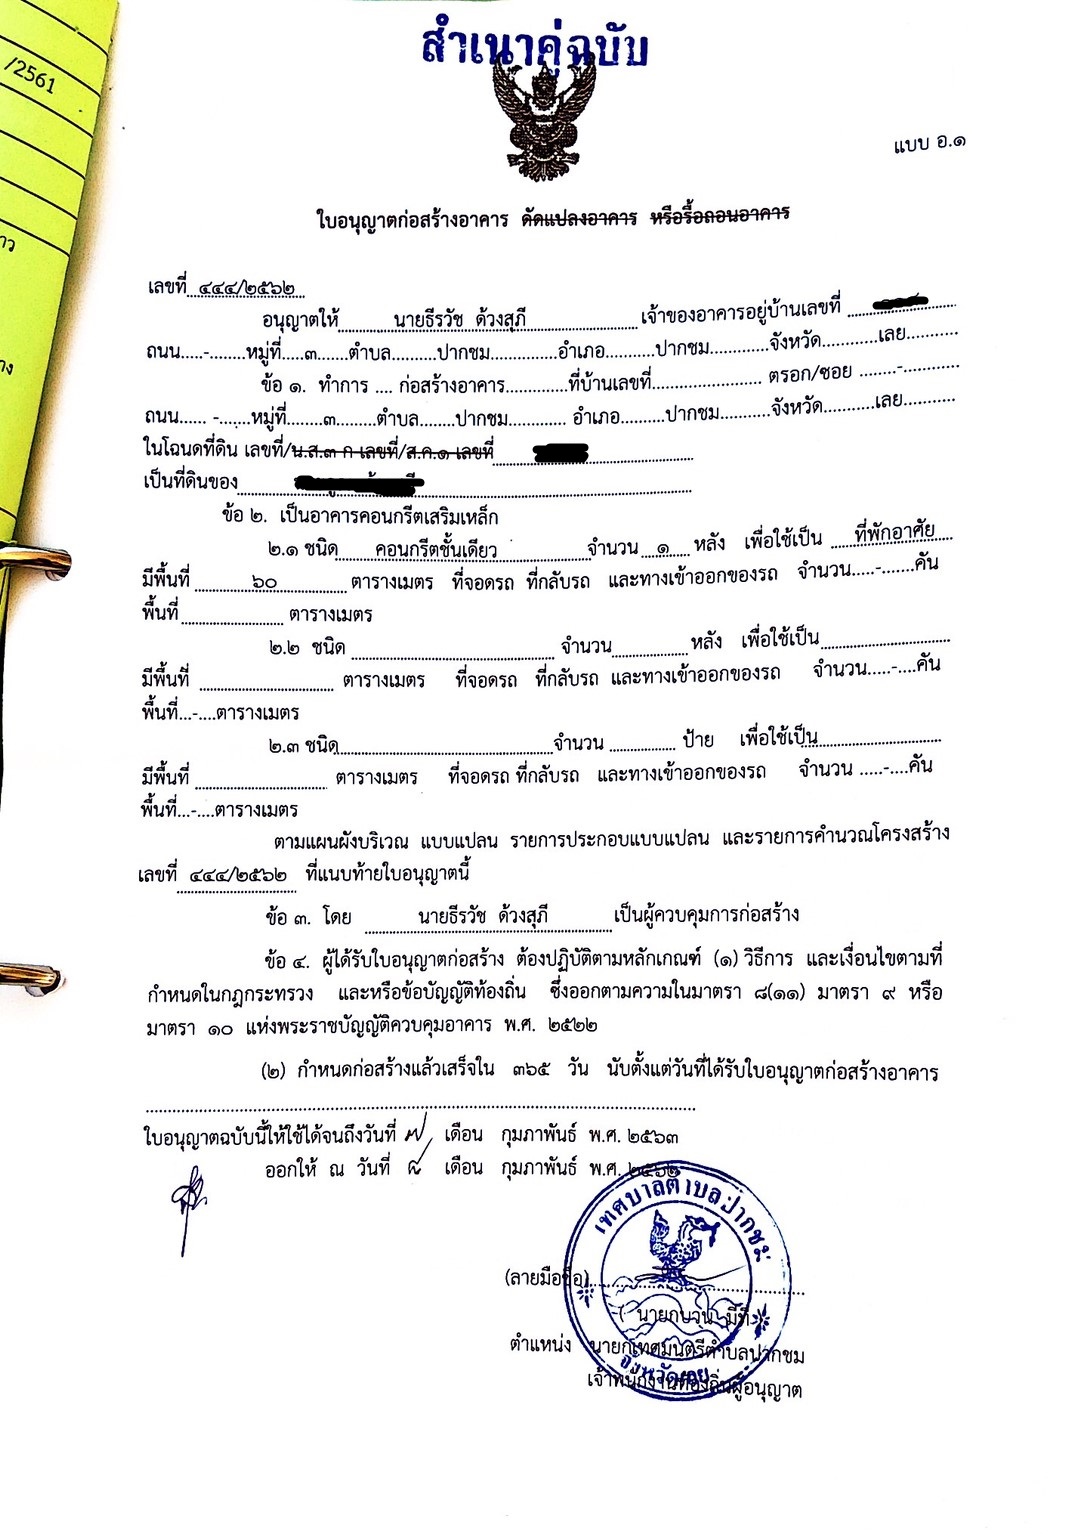 /2561
สำเนาคู่ฉบับ
แบบ อ.๑
ใบอนุญาตก่อสร้างอาคาร ดัดแปลงอาคาร หรือรื้อถอนอาคาร
เลขที่ ๔๔๔/๒๕๖๒
อนุญาตให้ นายธีรวัช ด้วงสุภี เจ้าของอาคารอยู่บ้านเลขที่
ถนน.....-........หมู่ที่.....๓......ตำบล.........ปากชม.............อำเภอ..........ปากชม............จังหวัด...........เลย..........
ข้อ ๑. ทำการ .... ก่อสร้างอาคาร............ที่บ้านเลขที่..................... ตรอก/ซอย ........-...........
ถนน...... -.......หมู่ที่.......๓........ตำบล.......ปากชม........... อำเภอ.........ปากชม..........จังหวัด..........เลย..........
ในโฉนดที่ดิน เลขที่/น.ส.๓ ก เลขที่/ส.ค.๑ เลขที่
เป็นที่ดินของ
ข้อ ๒. เป็นอาคารคอนกรีตเสริมเหล็ก
๒.๑ ชนิด คอนกรีตชั้นเดียว จำนวน ๑ หลัง เพื่อใช้เป็น ที่พักอาศัย
มีพื้นที่ ๖๐ ตารางเมตร ที่จอดรถ ที่กลับรถ และทางเข้าออกของรถ จำนวน.....-.......คัน
พื้นที่ ตารางเมตร
๒.๒ ชนิด จำนวน หลัง เพื่อใช้เป็น
มีพื้นที่ ตารางเมตร ที่จอดรถ ที่กลับรถ และทางเข้าออกของรถ จำนวน.....-....คัน
พื้นที่...-....ตารางเมตร
๒.๓ ชนิด จำนวน ป้าย เพื่อใช้เป็น
มีพื้นที่ ตารางเมตร ที่จอดรถ ที่กลับรถ และทางเข้าออกของรถ จำนวน .....-....คัน
พื้นที่...-....ตารางเมตร
ตามแผนผังบริเวณ แบบแปลน รายการประกอบแบบแปลน และรายการคำนวณโครงสร้าง
เลขที่ ๔๔๔/๒๕๖๒ ที่แนบท้ายใบอนุญาตนี้
ข้อ ๓. โดย นายธีรวัช ด้วงสุภี เป็นผู้ควบคุมการก่อสร้าง
ข้อ ๔. ผู้ได้รับใบอนุญาตก่อสร้าง ต้องปฏิบัติตามหลักเกณฑ์ (๑) วิธีการ และเงื่อนไขตามที่
กำหนดในกฎกระทรวง และหรือข้อบัญญัติท้องถิ่น ซึ่งออกตามความในมาตรา ๘(๑๑) มาตรา ๙ หรือ
มาตรา ๑๐ แห่งพระราชบัญญัติควบคุมอาคาร พ.ศ. ๒๕๒๒
(๒) กำหนดก่อสร้างแล้วเสร็จใน ๓๖๕ วัน นับตั้งแต่วันที่ได้รับใบอนุญาตก่อสร้างอาคาร
ใบอนุญาตฉบับนี้ให้ใช้ได้จนถึงวันที่ ๗ เดือน กุมภาพันธ์ พ.ศ. ๒๕๖๓
ออกให้ ณ วันที่ ๘ เดือน กุมภาพันธ์ พ.ศ. ๒๕๖๒
เทศบาลตำบลปากชม
(ลายมือชื่อ)
ตำแหน่ง นายกเทศมนตรีตำบลปากชม
จังหวัดเลย
เจ้าพนักงานท้องถิ่นผู้อนุญาต